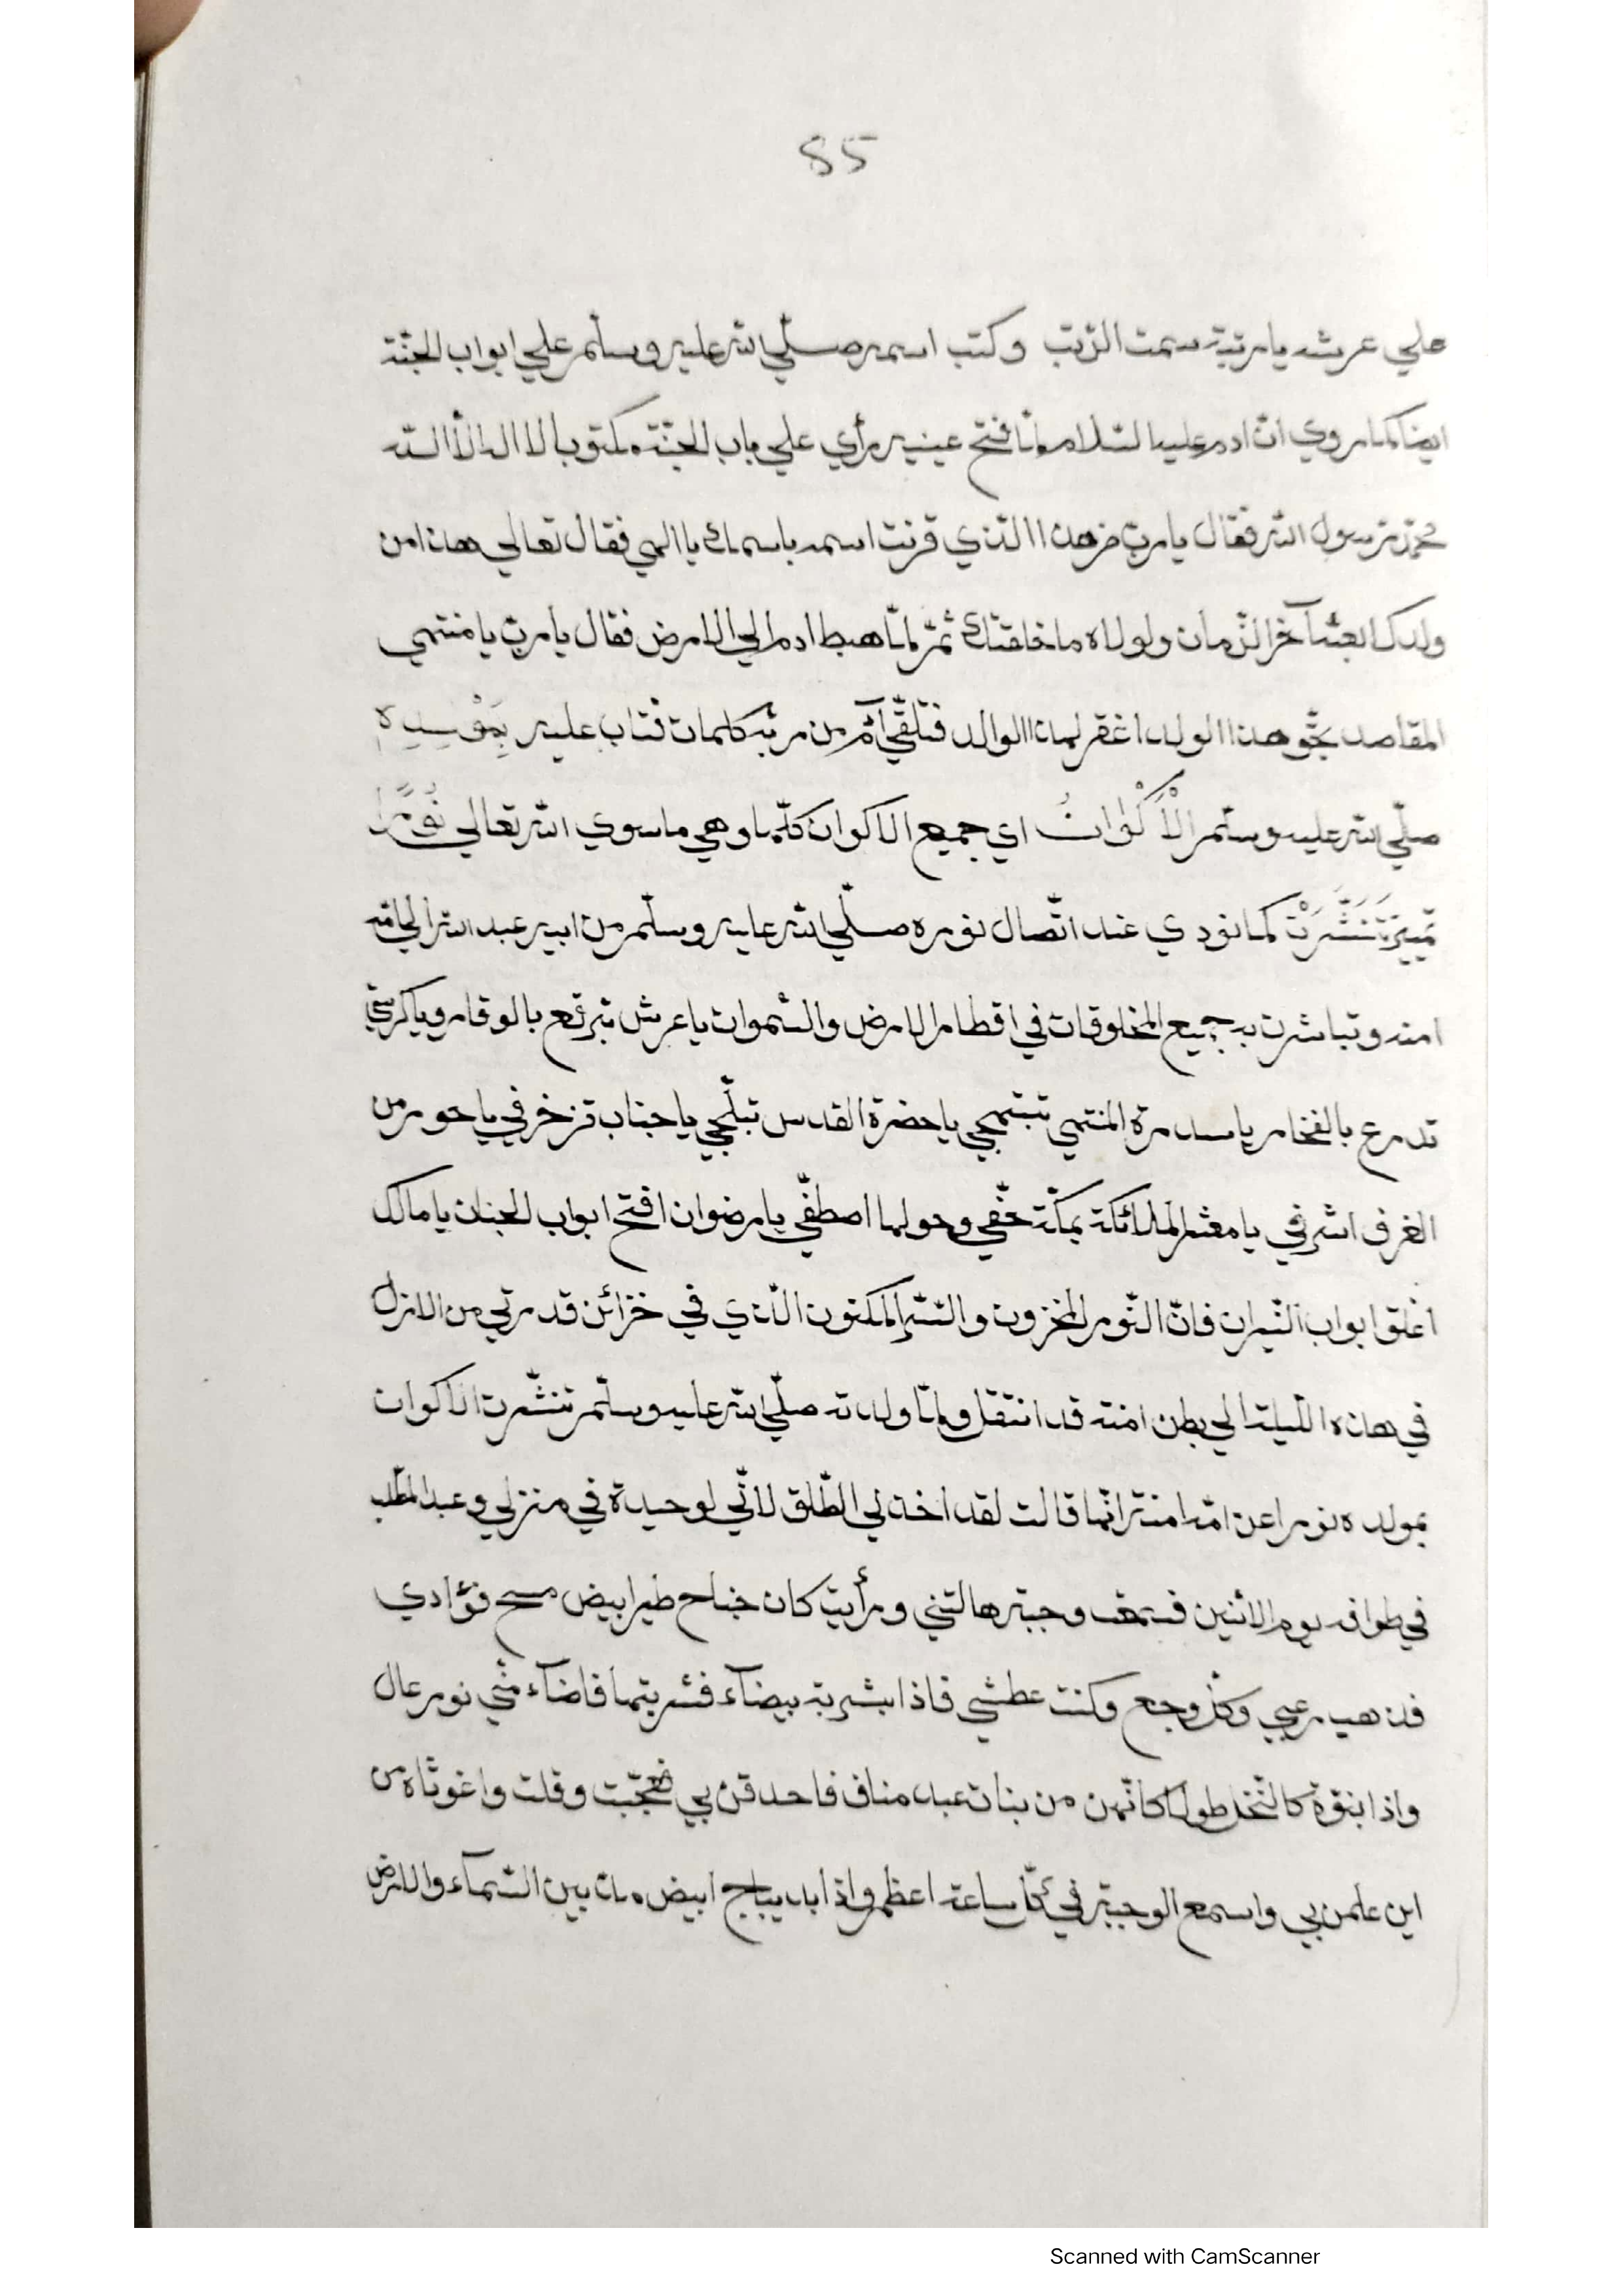 85
علي عرشه يا رتبة سمت الرّتب وكتب اسمه صلّي الله عليه وسلّم علي ابواب الجنّة
ايضا كما روي انّ ادم عليه السّلام لمّا فتح عينيه رأي علي باب الجنّة مكتوب لا اله الّا اللّه
محمّد رسول الله فقال يا ربّ من هذا الّذي قرنت اسمه باسمك يا الهي فقال تعالي هذا من
ولدك ابعثه آخر الزّمان ولولاه ما خلقتك ثمّ لمّا هبط ادم الي الارض فقال يا ربّ يا منتهي
المقاصد بحّق هذا الولد اغفر لهذا الوالد فتلقّي آدم من ربّه كلمات فتاب عليه بِمَوْلِدِهِ
صلّي الله عليه وسلّم الْأَكْوَانُ اي جميع الاكوان كلّها وهي ما سوي الله تعالي نُوْرًا
تمييز تَنَشَّرَتْ كما نودي عند اتّصال نوره صلّي الله عليه وسلّم من ابيه عبد الله الي امّه
امنه وتباشرت به جميع المخلوقات في اقطار الارض والسّموات يا عرش تبرقع بالوقار ويا كرسيّ
تدرع بالفخار يا سدرة المنتهي تبتهجي يا حضرة القدس تبلّجي يا جناب تزخرفي يا حور من
الغرف اشرفي يا معشر الملائكة بمكّة حفّي وحولها اصطفّي يا رضوان افتح ابواب الجنان يا مالك
اغلق ابواب النّيران فانّ النّور المخزون والسّرّ المكنون الّذي في خزائن قدرتي من الازل
في هذه اللّيلة الي بطن امنة قد انتقل ولمّا ولدته صلّي الله عليه وسلّم تنشّرت الاكوان
بمولده نورا عن امّه امنة انّها قالت لقد اخذني الطّلق لانّي لوحيدة في منزلي وعبد المطّلب
في طوافه يوم الاثنين فسمعت وجبة هالتني ورأيت كان جناح طير ابيض مسح فؤادي
فذهب رعبي وكلّ وجع وكنت عطشي فاذا بشربة بيضآء فشربتها فاضآء منّي نور عال
واذا بنسوة كالنّخل طولا كانّهن من بنات عبد مناف فاحدقن بي فتعجّبت وقلت واغوثاه من
اين علمن بي واسمع الوجبة في كلّ ساعة اعظم واذا بديباج ابيض مدّ بين السّمآء والارض
Scanned with CamScanner